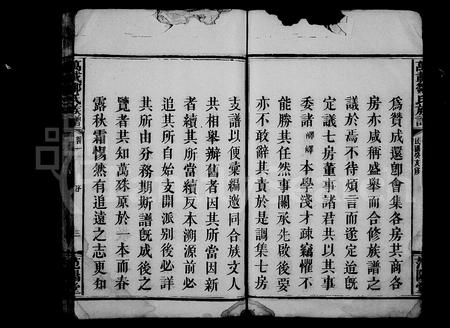 為贊成還卽會集各房共商各
房亦咸稱盛舉而合修族譜之
議於焉不待煩言而遂定迨旣
定議七房董事諸君共以其事
委諸　　本學淺才疎竊懼不
能勝其任然事關承先啟後要
亦不敢辭其責於是謂集七房
支譜以便彙編邀同合族文人
共相舉辦舊者因其所當因新
者續其所當續反本溯源前必
追其所自始支開派別後必詳
其所由分務期斯譜旣成後之
覽者共知萬殊原於一本而春
露秋霜惕然有追遠之志更知